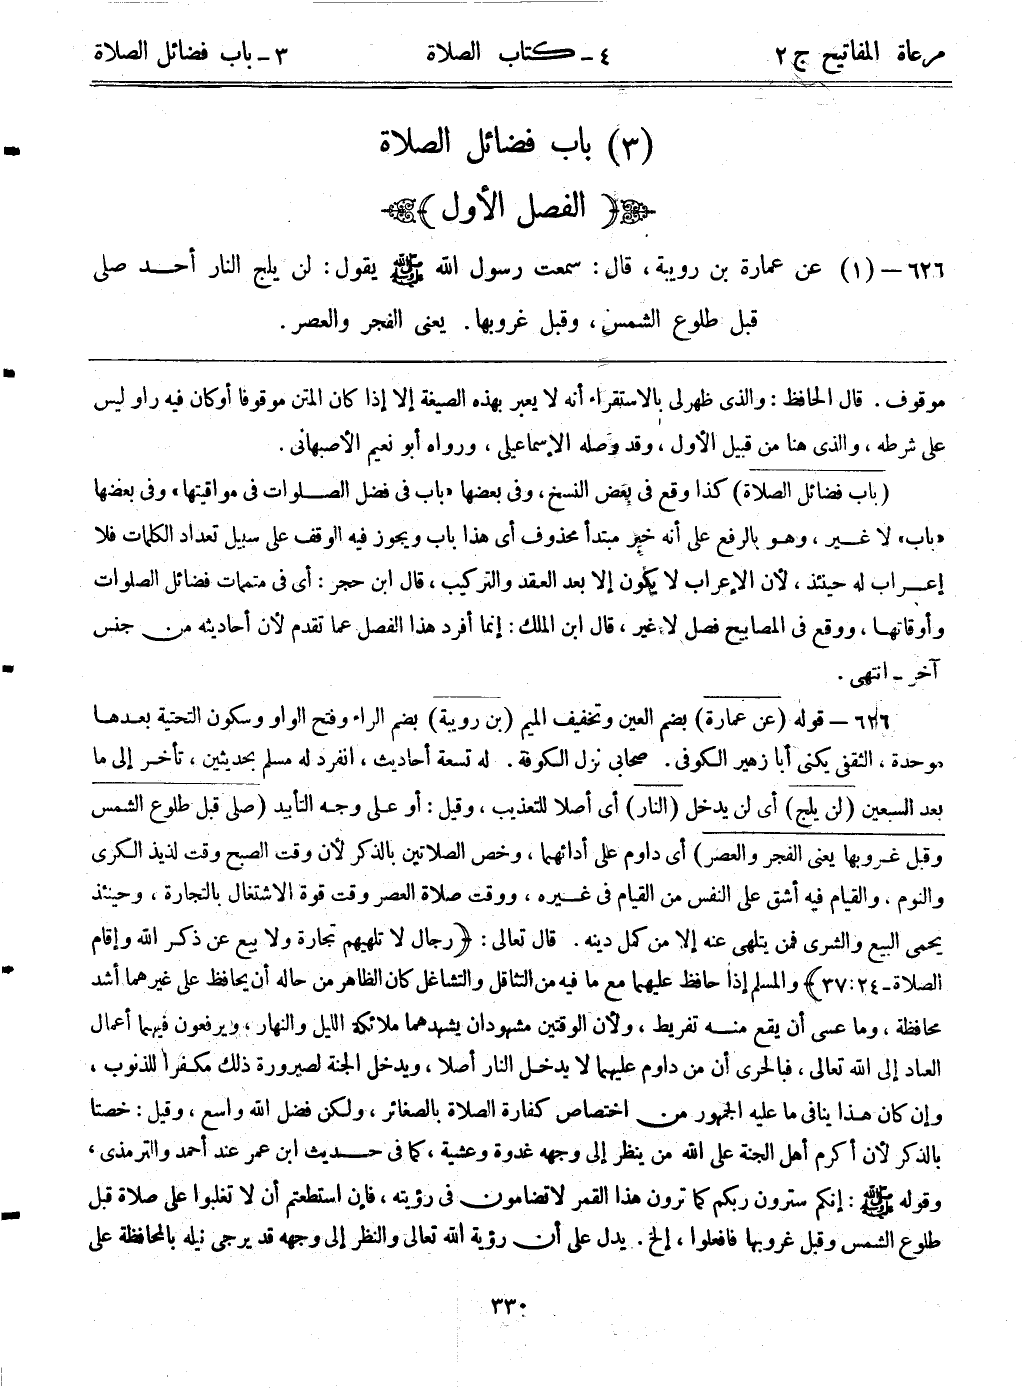 مرعاة المفاتيح ج ٢ ٤ - كتاب الصلاة ٣ - باب فضائل الصلاة
(٣) باب فضائل الصلاة
﴿ الفصل الأول ﴾
٦٢٦ – (١) عن عمارة بن رويبة، قال: سمعت رسول الله ﷺ يقول: لن يلج النار أحد صلى
قبل طلوع الشمس، وقبل غروبها. يعنى الفجر والعصر.
موقوف. قال الحافظ: والذى ظهرلى بالاستقراء أنه لا يعبر بهذه الصيغة إلا إذا كان المتن موقوفا أوكان فيه راو ليس
على شرطه، والذى هنا من قبيل الأول، وقد وصله الإسماعيلى، ورواه أبو نعيم الأصبهانى.
(باب فضائل الصلاة) كذا وقع فى بعض النسخ، وفى بعضها «باب فى فضل الصلوات فى مواقيتها» وفى بعضها
«باب» لا غير، وهو بالرفع على أنه خبر مبتدأ محذوف أى هذا باب ويجوز فيه الوقف على سبيل تعداد الكلمات فلا
إعراب له حينئذ، لأن الإعراب لا يكون إلا بعد العقد والتركيب، قال ابن حجر: أى فى متمات فضائل الصلوات
وأوقاتها، ووقع فى المصابيح فصل لا غير، قال ابن الملك: إنما أفرد هذا الفصل عما تقدم لأن أحاديثه من جنس
آخر - انتهى.
٦٢٦ – قوله (عن عمارة) بضم العين وتخفيف الميم (بن رويبة) بضم الراء وفتح الواو وسكون التحتية بعدها
موحدة، الثقفى يكنى أبا زهير الكوفى. صحابى نزل الكوفة. له تسعة أحاديث، انفرد له مسلم بحديثين، تأخر إلى ما
بعد السبعين (لن يلج) أى لن يدخل (النار) أى أصلا للتعذيب، وقيل: أو على وجه التأبيد (صلى قبل طلوع الشمس
وقبل غروبها يعنى الفجر والعصر) أى داوم على أدائهما، وخص الصلاتين بالذكر لأن وقت الصبح وقت لذيذ الكرى
والنوم، والقيام فيه أشق على النفس من القيام فى غيره، ووقت صلاة العصر وقت قوة الاشتغال بالتجارة، وحينئذ
يحمى البيع والشرى فمن يتلهى عنه إلا من كمل دينه. قال تعالى: ﴿رجال لا تلهيهم تجارة ولا بيع عن ذكر الله وإقام
الصلاة - ٢٤: ٣٧﴾ والمسلم إذا حافظ عليهما مع ما فيه من التثاقل والتشاغل كان الظاهر من حاله أن يحافظ على غيرهما أشد
محافظة، وما عسى أن يقع منه تفريط، ولأن الوقتين مشهودان يشهدهما ملائكة الليل والنهار، ويرفعون فيهما أعمال
العباد إلى الله تعالى، فبالحرى أن من داوم عليهما لا يدخل النار أصلا، ويدخل الجنة لصيرورة ذلك مكفرا للذنوب،
وإن كان هذا ينافى ما عليه الجمهور من اختصاص كفارة الصلاة بالصغائر، ولكن فضل الله واسع، وقيل: خصتا
بالذكر لأن أكرم أهل الجنة على الله من ينظر إلى وجهه غدوة وعشية، كما فى حديث ابن عمر عند أحمد والترمذى،
وقوله ﷺ: إنكم سترون ربكم كما ترون هذا القمر لا تضامون فى رؤيته، فإن استطعتم أن لا تغلبوا على صلاة قبل
طلوع الشمس وقبل غروبها فافعلوا، إلخ. يدل على أن رؤية الله تعالى والنظر إلى وجهه قد يرجى نيله بالمحافظة على
٣٣٠